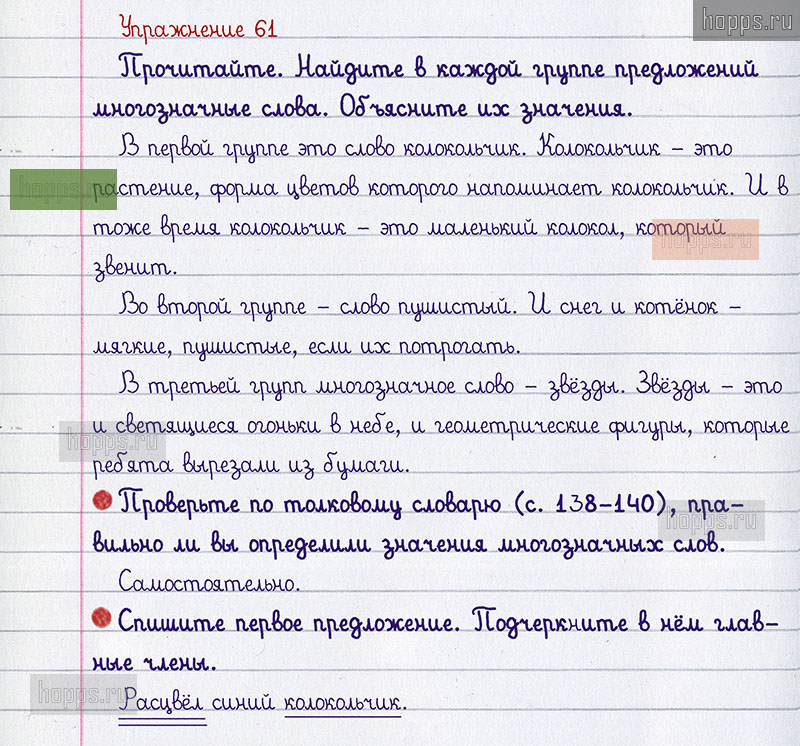 hopps.ru
Упражнение 61
Прочитайте. Найдите в каждой группе предложений
многозначные слова. Объясните их значения.
В первой группе это слово колокольчик. Колокольчик – это
hopps.ru
растение, форма цветов которого напоминает колокольчик. И в
тоже время колокольчик – это маленький колокол, который
hopps.ru
звенит.
Во второй группе – слово пушистый. И снег и котёнок –
мягкие, пушистые, если их потрогать.
В третьей групп многозначное слово – звёзды. Звёзды – это
и светящиеся огоньки в небе, и геометрические фигуры, которые
hopps.ru
ребята вырезали из бумаги.
Проверьте по толковому словарю (с. 138–140), пра-
hopps.ru
вильно ли вы определили значения многозначных слов.
Самостоятельно.
Спишите первое предложение. Подчеркните в нём глав-
ные члены.
hopps.ru
Расцвёл синий колокольчик.